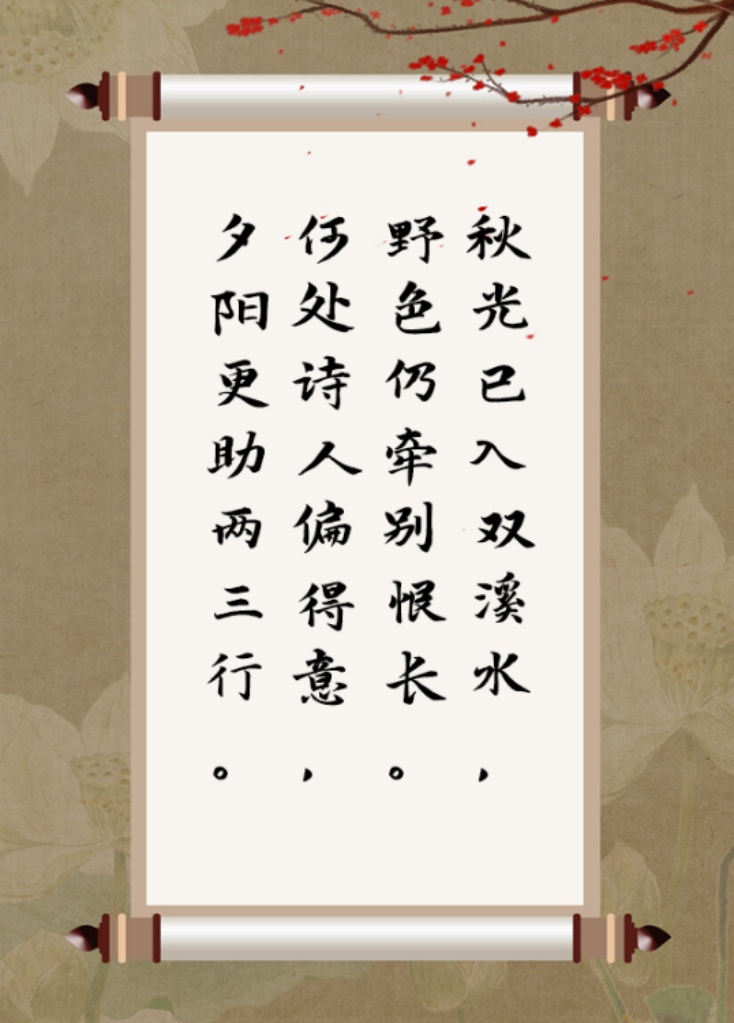 秋光已入双溪水，
野色仍牵别恨长。
何处诗人偏得意，
夕阳更助两三行。